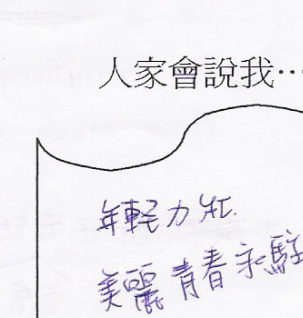 人家會說我⋯
年輕力壯.
美麗青春永駐